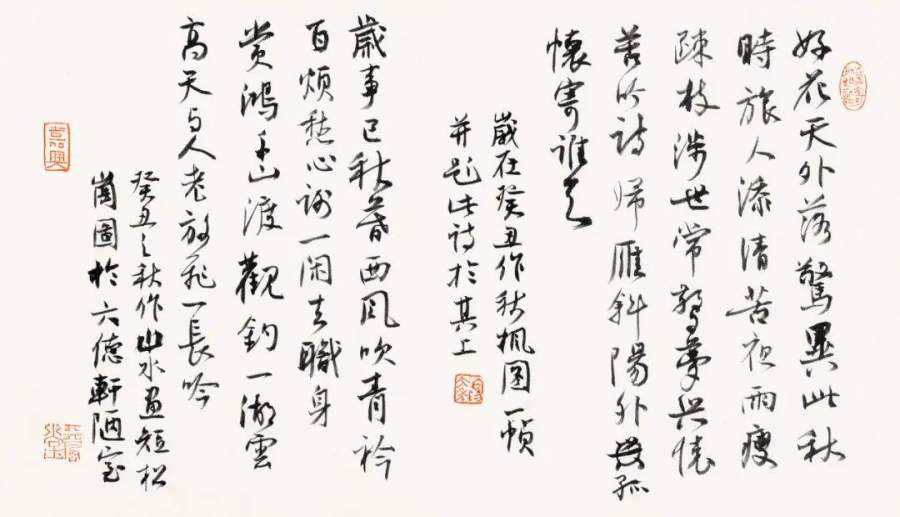 好花天外落驚異此秋
時旅人添清苦夜雨瘦
疎枝涉世常驚夢興懷
苦吟詩歸雁斜陽外孤
懷寄誰之
歲在癸丑作秋楓圖一幀
并題此詩於其上
歲事已秋暮西風吹青衿
百煩愁心謝一閑去職身
賞鴻千山渡觀釣一湖雲
高天与人老放飛一長吟
癸丑之秋作山水畫短松
崗圖於六德軒陋室
嘉興